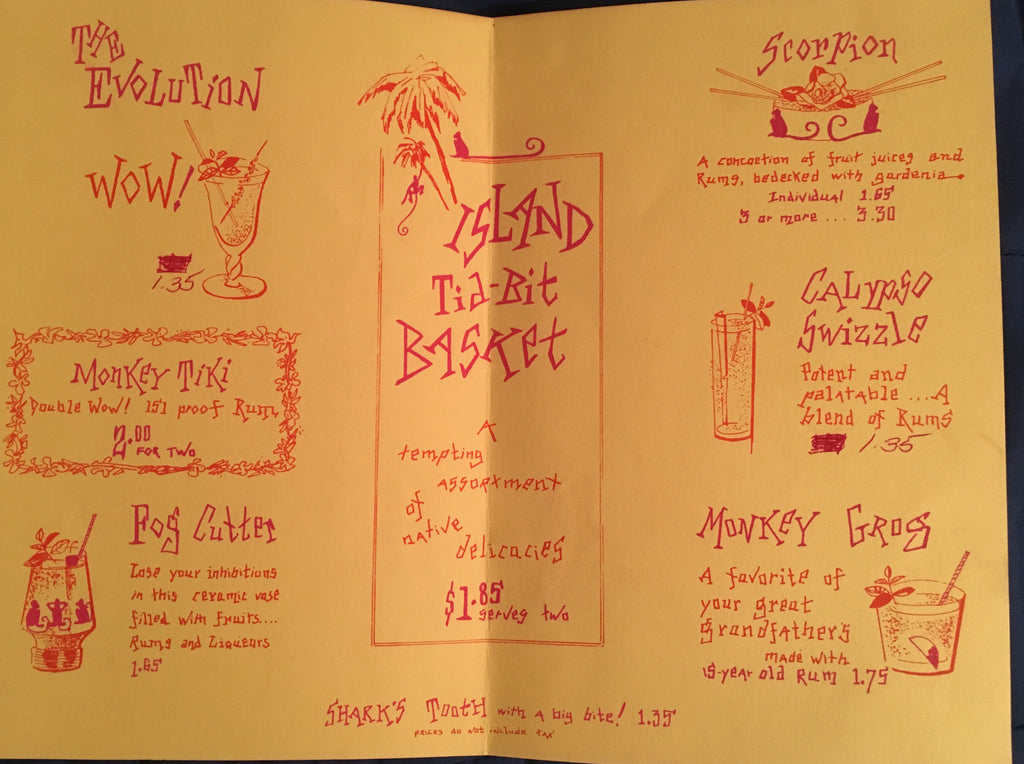 THE
EVOLUTION
WOW!
1.35
MONKEY TIKI
Double Wow! 151 proof Rum
2.00
FOR TWO
Fog Cutter
Lose your inhibitions
in this ceramic vase
filled with fruits....
Rums and Liqueurs
1.85
ISLAND
Tid-Bit
BASKET
A
tempting
assortment
of
native
delicacies
$1.85
serves two
SHARK'S TOOTH with a big bite! 1.35
prices do not include tax
Scorpion
A concoction of fruit juices and
Rums, bedecked with gardenia.
Individual 1.65
3 or more ... 3.30
CALYPSO
Swizzle
Potent and
palatable ...A
blend of Rums
1.35
MONKEY GROG
A favorite of
your great
Grandfather's
made with
15-year old Rum 1.75